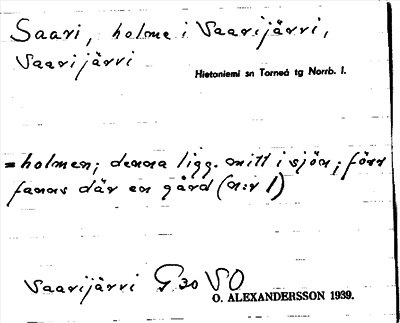 Saari, holme i Vaarijärvi,
Vaarijärvi
Hietoniemi sn Torneå tg Norrb. l.
= holmen; denna ligg. mitt i sjön; förr
fanns där en gård (n:r 1)
Vaarijärvi G 30 VO
O. ALEXANDERSSON 1939.